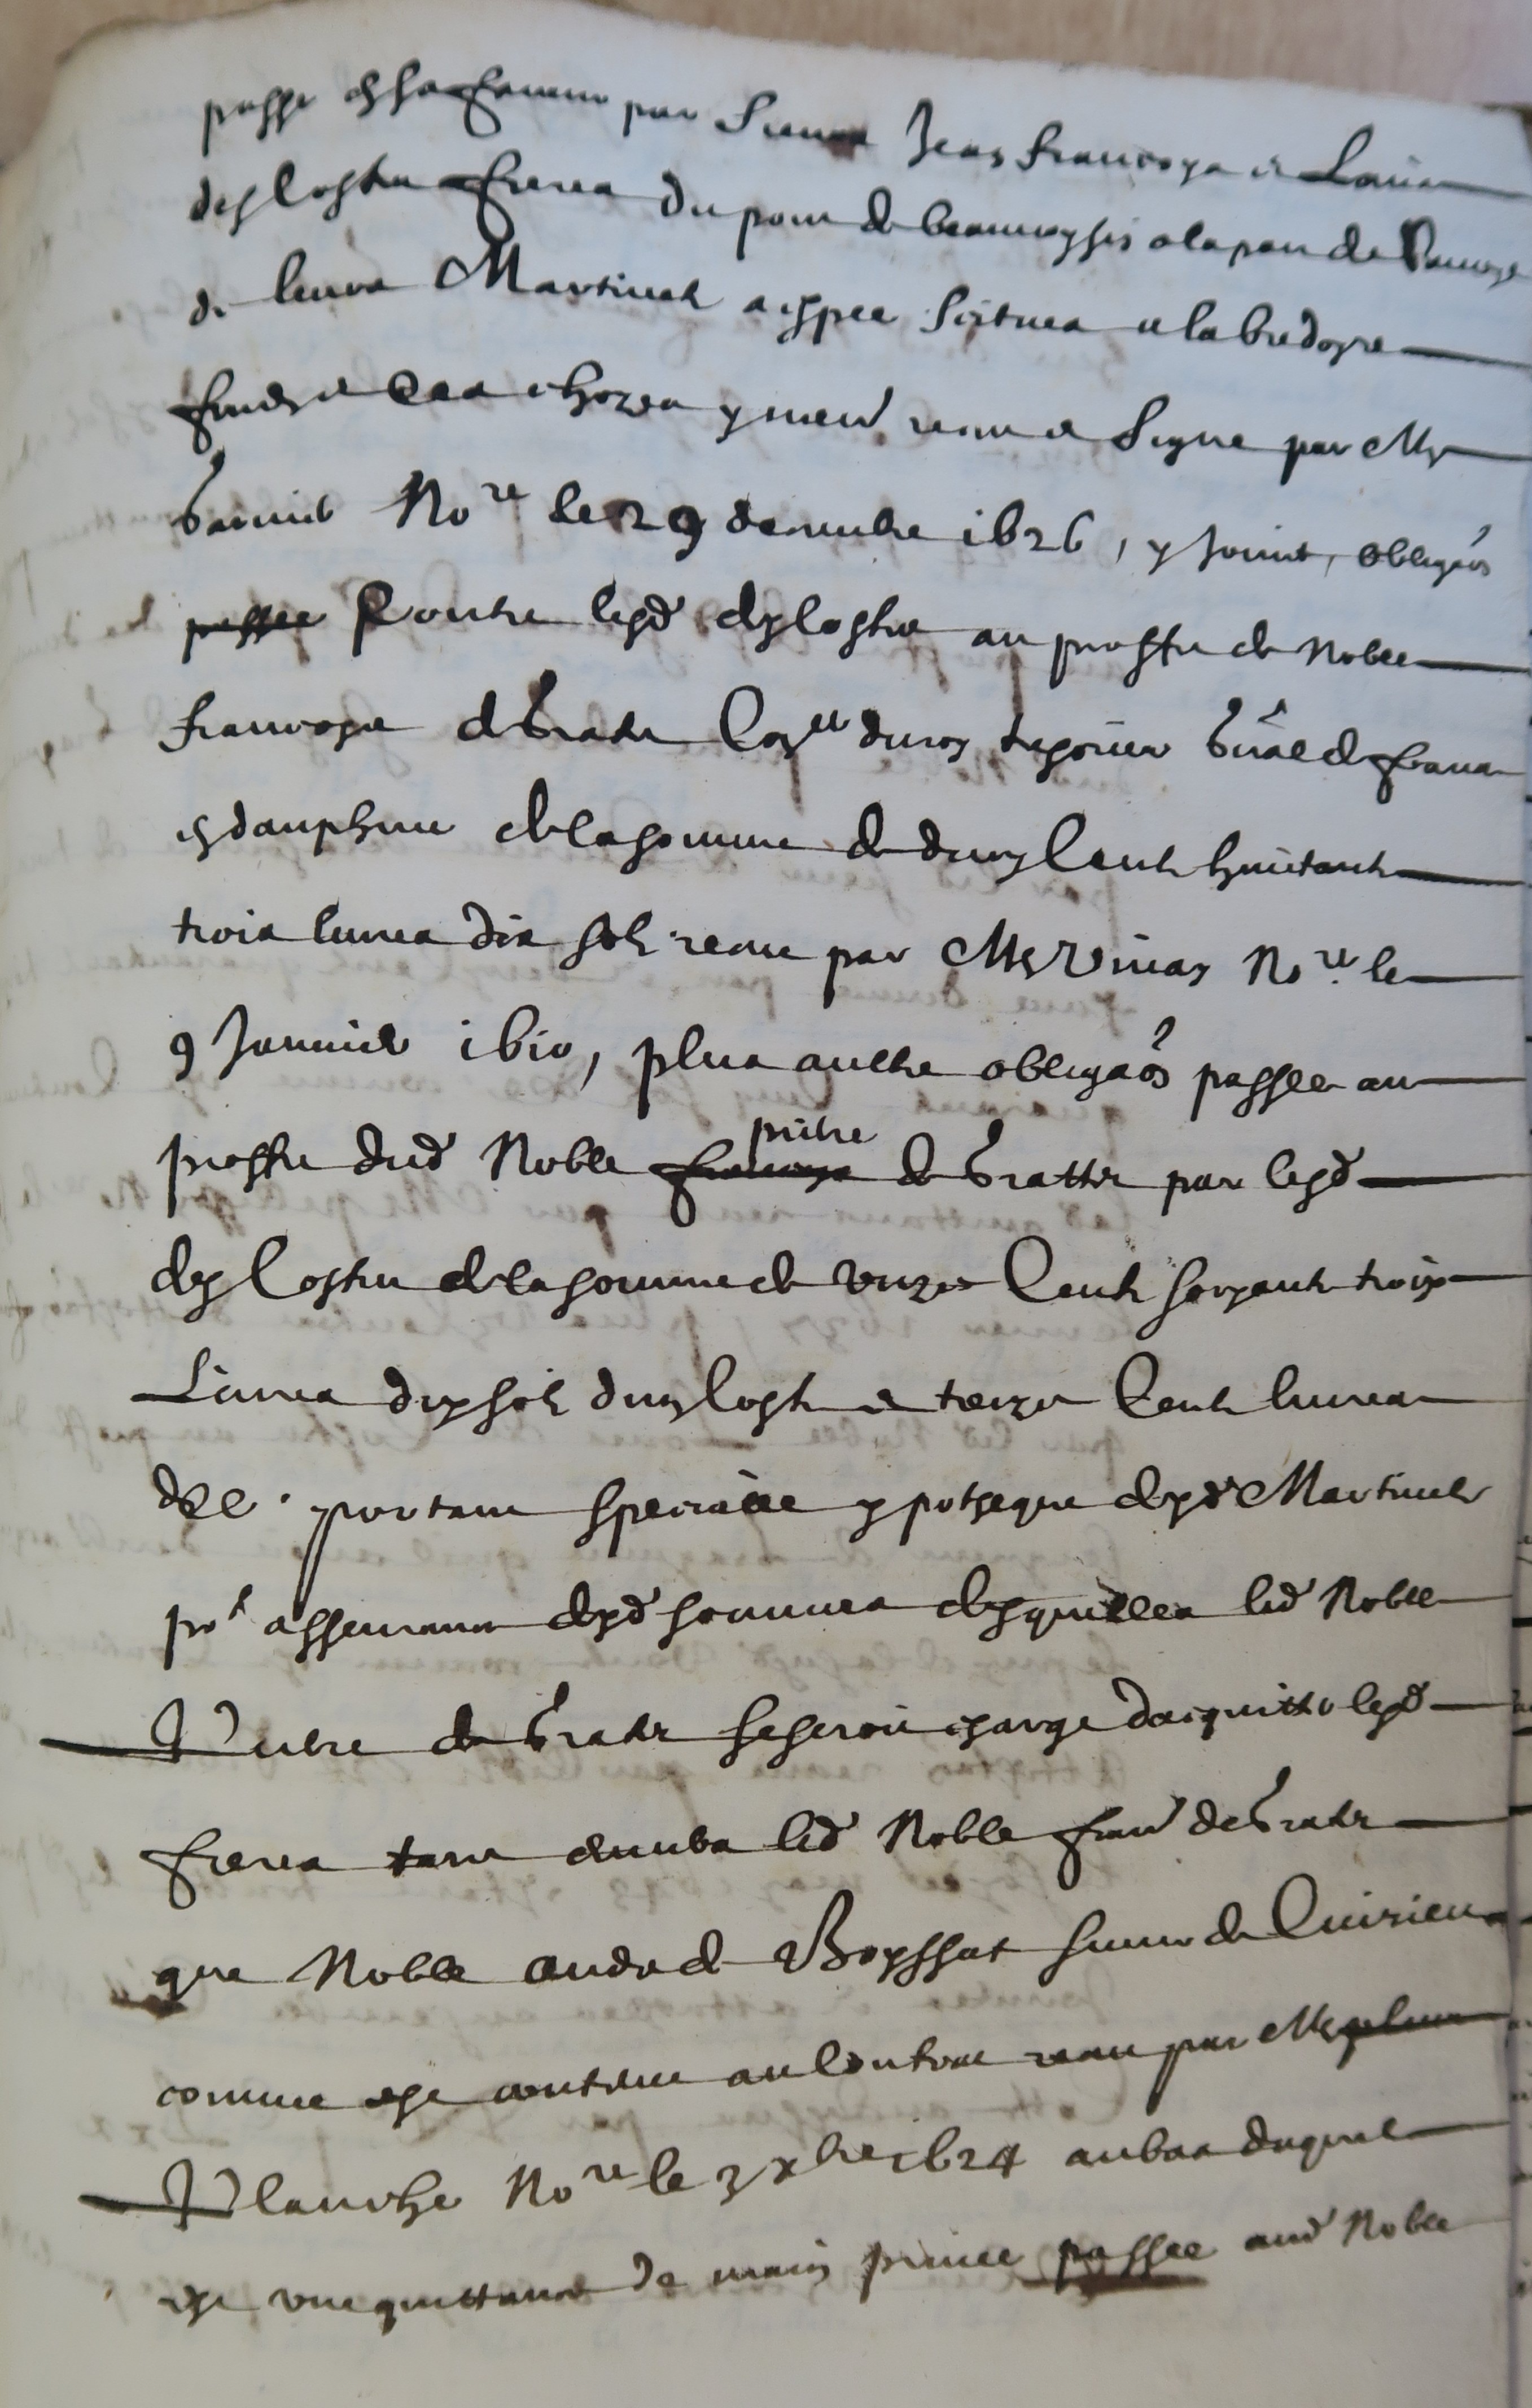 passe en sa faveur par Sieurs Jean francoys et Louis
deslostre freres du pont de beauvoysin a la part de Savoye
de leurs Martinet a espee scitues a la bredoyre
fondz et aes chozes y men.d receu et signe par Me
Nore le 29 decembre 1626, y Joinct, obligaôn
Contre lesd deslostre au proffit de Noble
francoys de Gratte Conser du roy tresorier gnâl de france
en dauphine de la somme de deux Centz huictante
trois livres dix solz receu par Me Nore le
9 Janvier 1610, plus aultre obligaôn passee au
proffit dud Noble pierre de Gratte par lesd
des Costes de la somme de unze Centz soixante troys
Livres dix solz dung coste et treize Centz livres
del portant specialle ypotheque desd Martinetz
pr assurance desd sommes desquelles led Noble
Pierre de Gratte se seroit charge dacquitter lesd
freres tant envers led Noble fran de Gratte
que Noble de Boyssat sieur de Cuirieu
comme est contenu au Contract receu par Me
Planche Nore le 3 xbre 1624 au bas duquel
est une quittance de main privee passee aud Noble